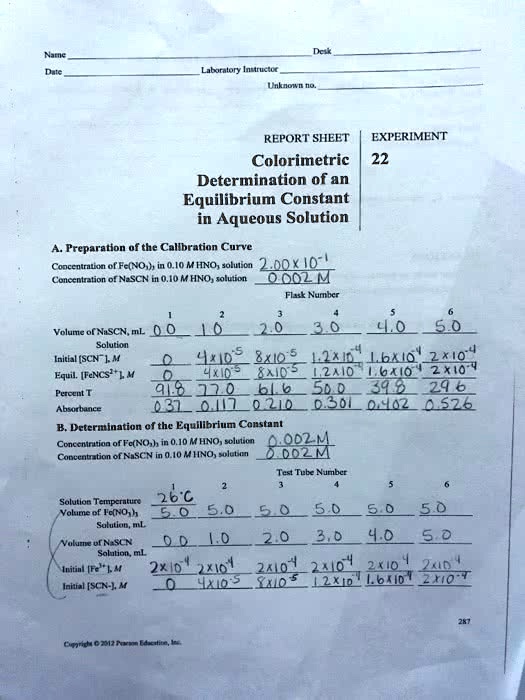 Name Desk
Date Laboratory Instructor
Unknown no.
REPORT SHEET EXPERIMENT
Colorimetric 22
Determination of an
Equilibrium Constant
in Aqueous Solution
A. Preparation of the Calibration Curve
Concentration of Fe(NO₃)₃ in 0.10 M HNO₃ solution 2.00 x 10⁻¹
Concentration of NaSCN in 0.10 M HNO₃ solution 0.002 M
Flask Number
1 2 3 4 5 6
Volume of NaSCN, mL 0.0 1.0 2.0 3.0 4.0 5.0
Solution
Initial [SCN⁻], M 0 4x10⁻⁵ 8x10⁻⁵ 1.2x10⁻⁴ 1.6x10⁻⁴ 2x10⁻⁴
Equil. [FeNCS²⁺], M 0 4x10⁻⁵ 8x10⁻⁵ 1.2x10⁻⁴ 1.6x10⁻⁴ 2x10⁻⁴
Percent T 91.8 77.0 61.6 50.0 39.8 29.6
Absorbance 0.37 0.117 0.210 0.301 0.402 0.526
B. Determination of the Equilibrium Constant
Concentration of Fe(NO₃)₃ in 0.10 M HNO₃ solution 0.002 M
Concentration of NaSCN in 0.10 M HNO₃ solution 0.002 M
Test Tube Number
1 2 3 4 5 6
Solution Temperature 26°C
Volume of Fe(NO₃)₃ 5.0 5.0 5.0 5.0 5.0 5.0
Solution, mL
Volume of NaSCN 0.0 1.0 2.0 3.0 4.0 5.0
Solution, mL
Initial [Fe³⁺], M 2x10⁻⁴ 2x10⁻⁴ 2x10⁻⁴ 2x10⁻⁴ 2x10⁻⁴ 2x10⁻⁴
Initial [SCN-], M 0 4x10⁻⁵ 8x10⁻⁵ 1.2x10⁻⁴ 1.6x10⁻⁴ 2x10⁻⁴
287
Copyright © 2012 Pearson Education, Inc.